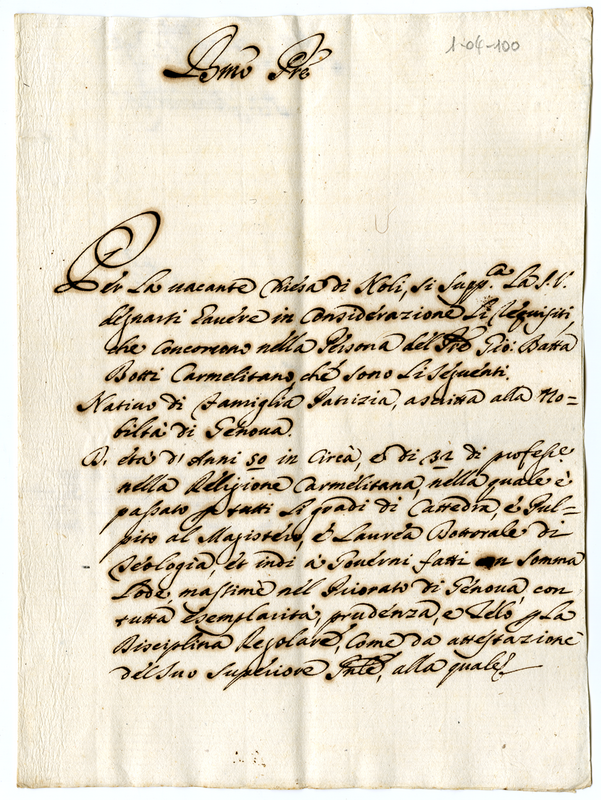 1-04-100
Bmo Pre
Per La uacante Chiesa di Noli, si Supp.ca La S. V.
degnarsi hauere in Considerazione Li Requisiti,
che Concorrono nella Persona del Pre Gio: Batta
Botti Carmelitano, che sono Li Seguenti.
Natiuo di Famiglia Patrizia, ascritta alla No=
biltà di Genoua.
D' età d' Anni 50 in Circà, e di 32 di professe
nella Religione Carmelitana, nella quale è
passato p tutti Li gradi di Cattedra, e Pul=
pito al Magistero, e Laurea Dottorale di
Teologia, et indi a Gouerni fatti con somma
Lode massime nel Priorato di Genoua, con
tutta esemplarità, prudenza, e Zelo p La
Disciplina Regolare, Come da attestazione
del Suo Superiore Gnle, alla quale